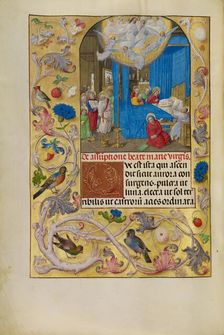 De assuptione beate marie virgis.
Ve est ista qui ascen
dit sicut aurora con
surgens. pulcra ut
luna. electa ut sol ter
ribilis ut castrorū acies ordinata.